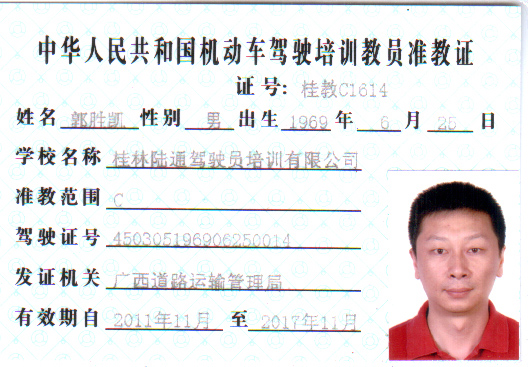 中华人民共和国机动车驾驶培训教员准教证
证号: 桂教C1614
姓名 郭胜凯 性别 男 出生 1969 年 6 月 25 日
学校名称 桂林陆通驾驶员培训有限公司
准教范围 C
驾驶证号 450305196906250014
发证机关 广西道路运输管理局
有效期自 2011年11月 至 2017年11月